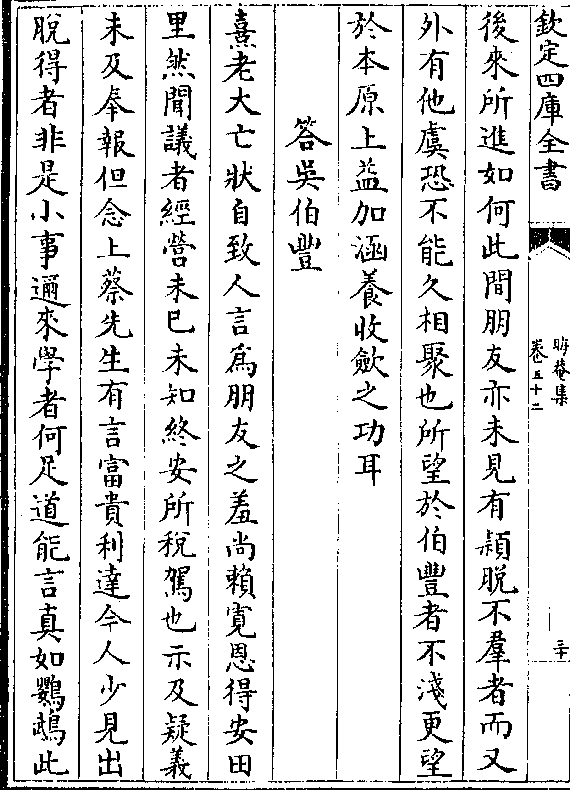 欽定四庫全書
晦菴集
卷五十二
三十
後來所進如何此間朋友亦未見有穎脫不羣者而又
外有他虞恐不能久相聚也所望於伯豐者不淺更望
於本原上益加涵養收斂之功耳
答吳伯豐
熹老大亡狀自致人言為朋友之羞尚賴寛恩得安田
里然聞議者經營未已未知終安所稅駕也示及疑義
未及奉報但念上蔡先生有言富貴利達今人少見出
脫得者非是小事邇來學者何足道能言真如鸚鵡此